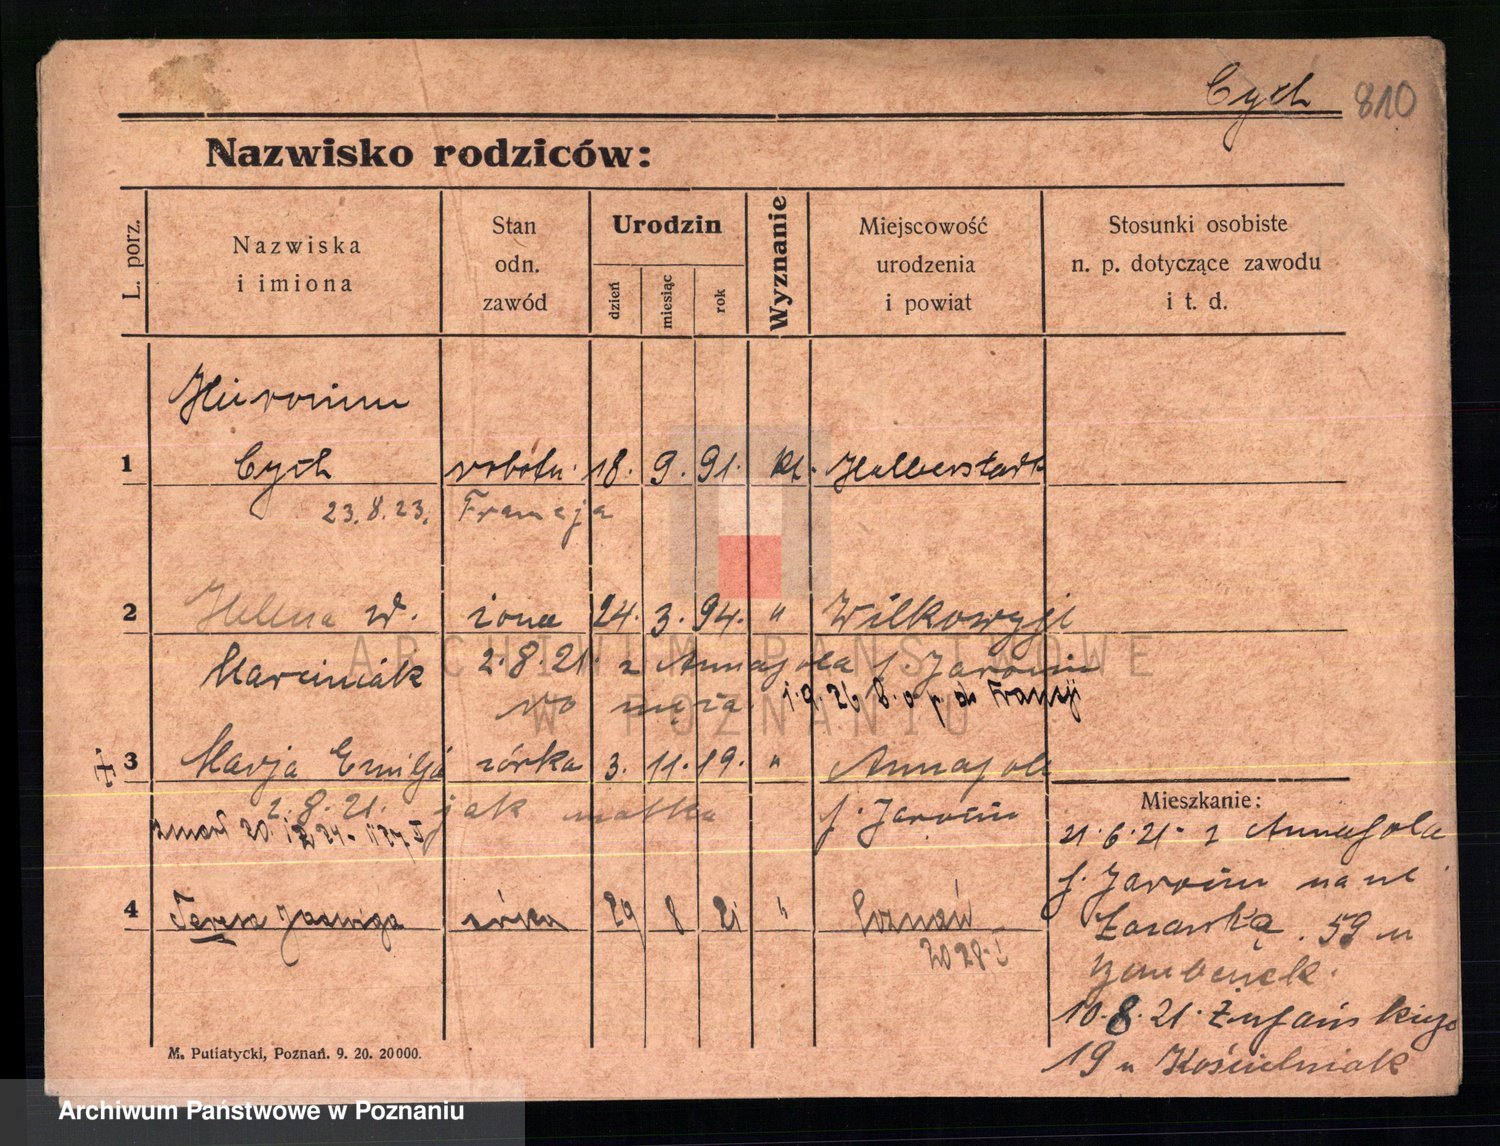 Cych 810
Nazwisko rodziców:
L. porz.
Nazwiska
i imiona
Stan
odn.
zawód
Urodzin
dzień
miesiąc
rok
Wyznanie
Miejscowość
urodzenia
i powiat
Stosunki osobiste
n. p. dotyczące zawodu
i t. d.
Hieronim
1 Cych robotn. 18. 9. 91. kt. Halberstadt
23.8.23. Francja
2 Helena zd. żona 24. 3. 94. " Wilkowyje
Marciniak 2.8.21. z Annapola p. Jarocin
do męża. 1.9.26 8. o p. do Francji
3 Marja Emilja córka 3. 11. 19. " Annapole
2.8.21. jak matka p. Jarocin
zmarł 20.12.21
4 Teresa Jadwiga córka 29 8 21 " Poznań
Mieszkanie:
21.6.21. z Annapola
p. Jarocin na ul
59 u
10.8.21. Żupańskiego
19 u Kościelniak
M. Putiatycki, Poznań. 9. 20. 20000.
ARCHIWUM PAŃSTWOWE
W POZNANIU
Archiwum Państwowe w Poznaniu